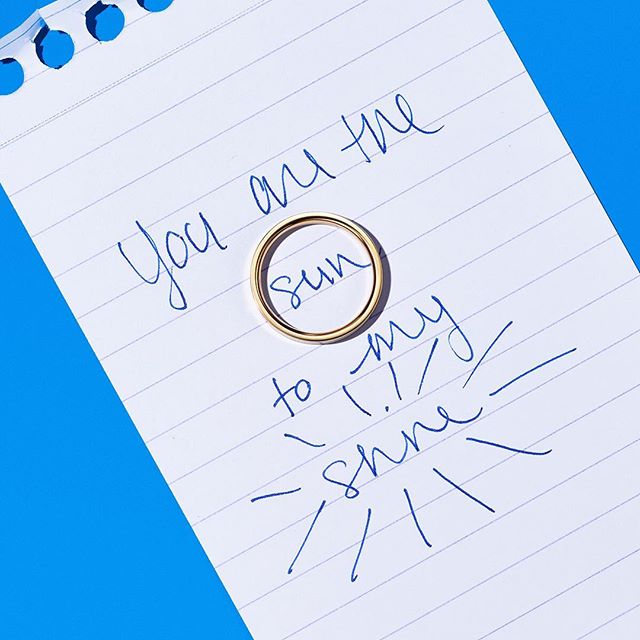 You are the
sun
to my
shine